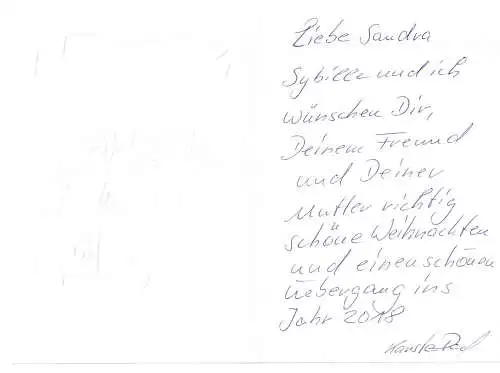 Liebe Sandra
Sybille und ich
wünschen Dir,
Deinem Freund
und Deiner
Mutter richtig
schöne Weihnachten
und einen schönen
Uebergang ins
Jahr 2018